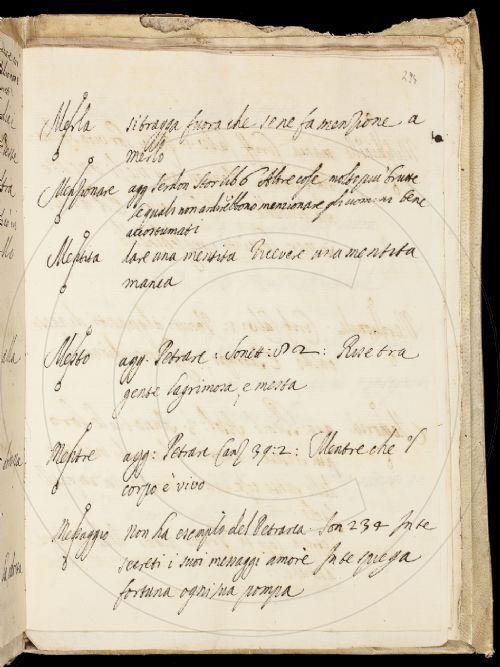 293
Merla si tragga fuora che se ne fa menzione a
merlo
Menzionare agg Serdon Stor lib 6 Altre cose molto piu brutte
le quali non ardirebbono menzionare gli uomini bene
accostumati
Mentita dare una mentita ricevere una mentita
manca
Mesto agg. Petrarc: Sonet: 82: Rise tra
gente lagrimosa, e mesta
Mentre agg: Petrarc Canz 39:2: Mentre che 'l
corpo è vivo
Messaggio Non ha esemplo del Petrarca Son 234 In te
secreti i suoi messaggi amore In te spiega
fortuna ogni sua pompa